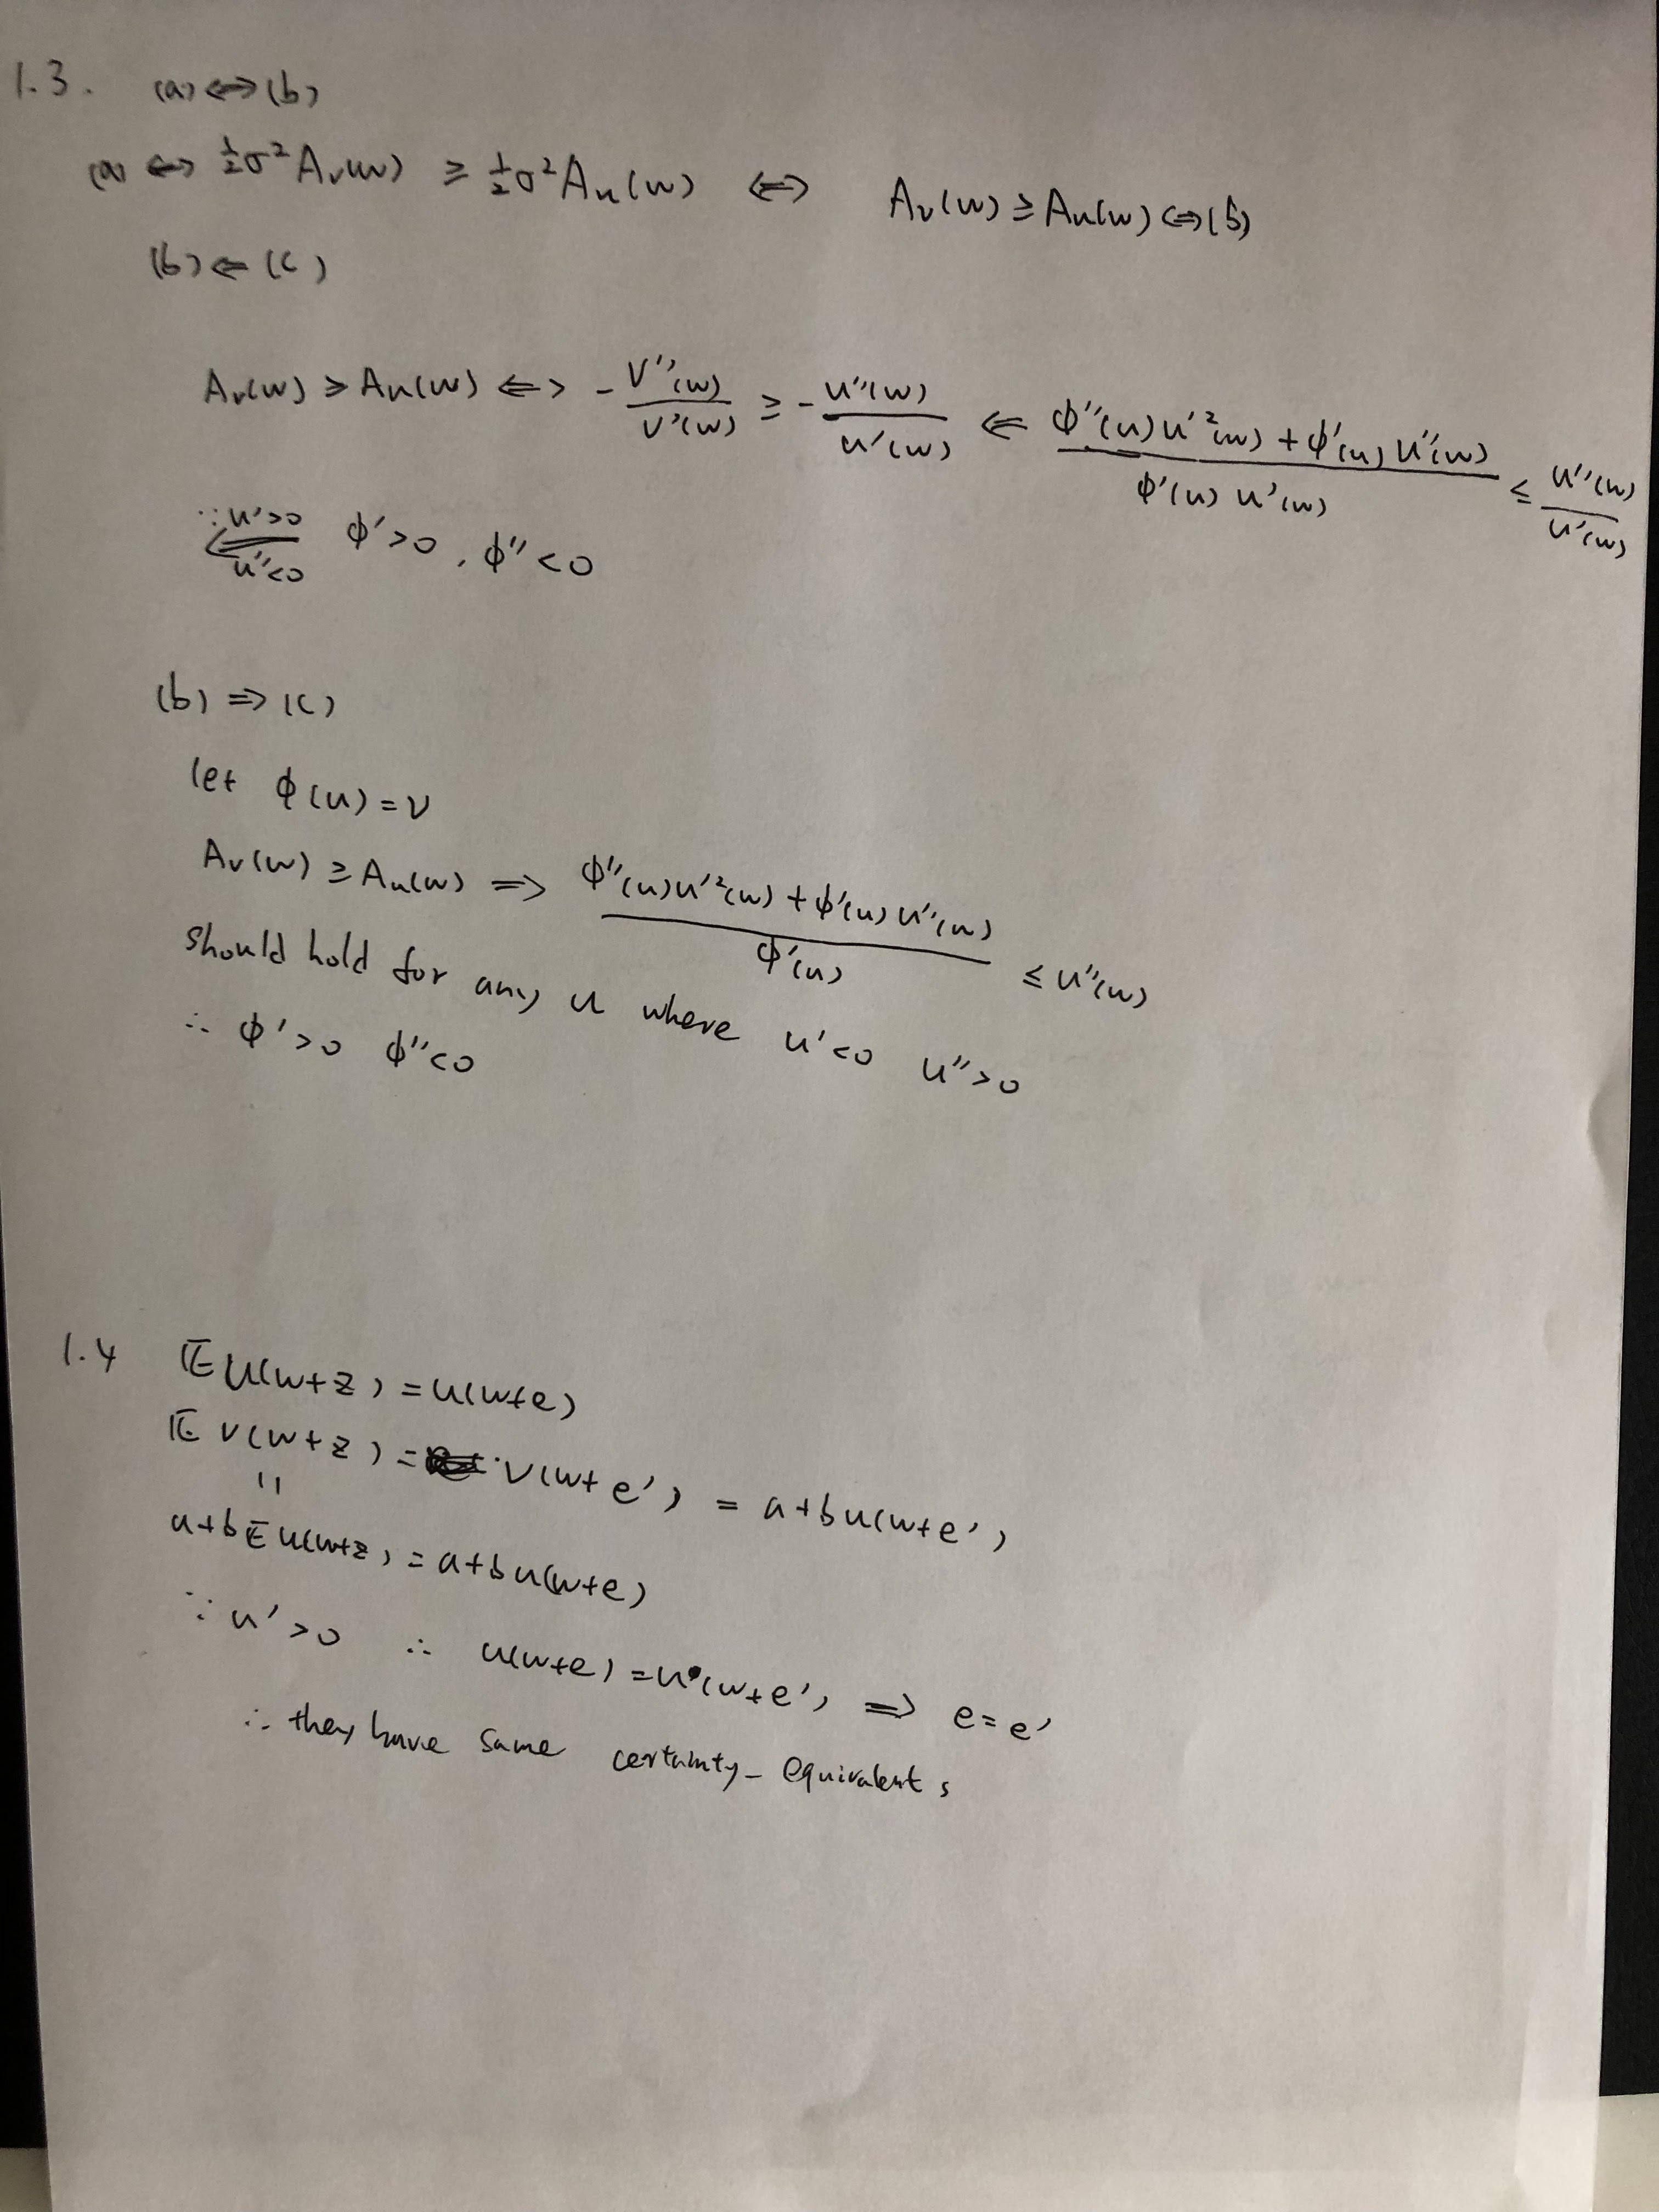 1.3. (a) ⟺ (b)
(a) ⟺ ½σ²Aᵥ(w) ≥ ½σ²Aᵤ(w) ⟺ Aᵥ(w) ≥ Aᵤ(w) ⟺ (b)
(b) ⇐ (c)
Aᵥ(w) ≥ Aᵤ(w) ⟺ - V''(w) / V'(w) ≥ - u''(w) / u'(w) ⇐ (ϕ''(u)u'²(w) + ϕ'(u)u''(w)) / (ϕ'(u)u'(w)) ≤ u''(w) / u'(w)
⇐ (∵ u'>0 u''<0) ϕ'>0, ϕ''<0
(b) ⇒ (c)
let ϕ(u) = v
Aᵥ(w) ≥ Aᵤ(w) ⇒ (ϕ''(u)u'²(w) + ϕ'(u)u''(w)) / ϕ'(u) ≤ u''(w)
should hold for any u where u'<0 u''>0
∴ ϕ'>0 ϕ''<0
1.4 𝔼u(w+z) = u(w+e)
𝔼v(w+z) = v(w+e') = a+bu(w+e')
=
a+b𝔼u(w+z) = a+bu(w+e)
∵ u'>0 ∴ u(w+e) = u(w+e') ⇒ e=e'
∴ they have same certainty-equivalents